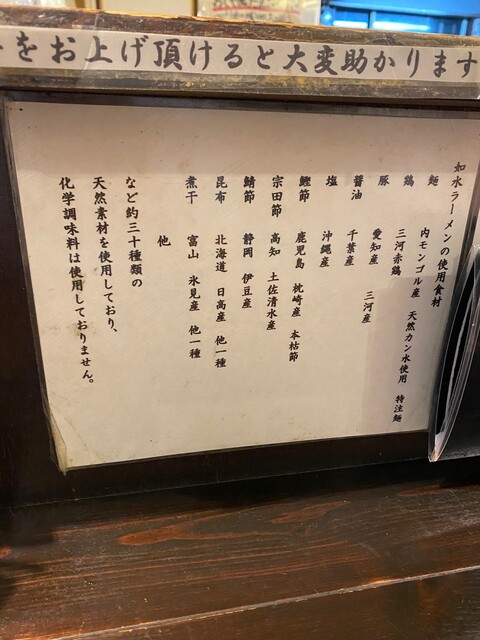 をお上げ頂けると大変助かります
如水ラーメンの使用食材
麺 内モンゴル産 天然カン水使用 特注麺
鶏 三河赤鶏
豚 愛知産 三河産
醤油 千葉産
塩 沖縄産
鰹節 鹿児島 枕崎産 本枯節
宗田節 高知 土佐清水産
鯖節 静岡 伊豆産
昆布 北海道 日高産 他一種
煮干 富山 氷見産 他一種
他
など約三十種類の
天然素材を使用しており、
化学調味料は使用しておりません。